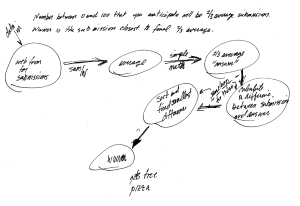 Number between 0 and 100 that you anticipate will be 2/3 average submission.
Winner is the submission closest to final 2/3 average.
data in
with from for submissions
sum/
average
simple math
2/3 average "answer"
calculate difference between submission and answer
sort and find smallest difference
winner
gets free
pizza